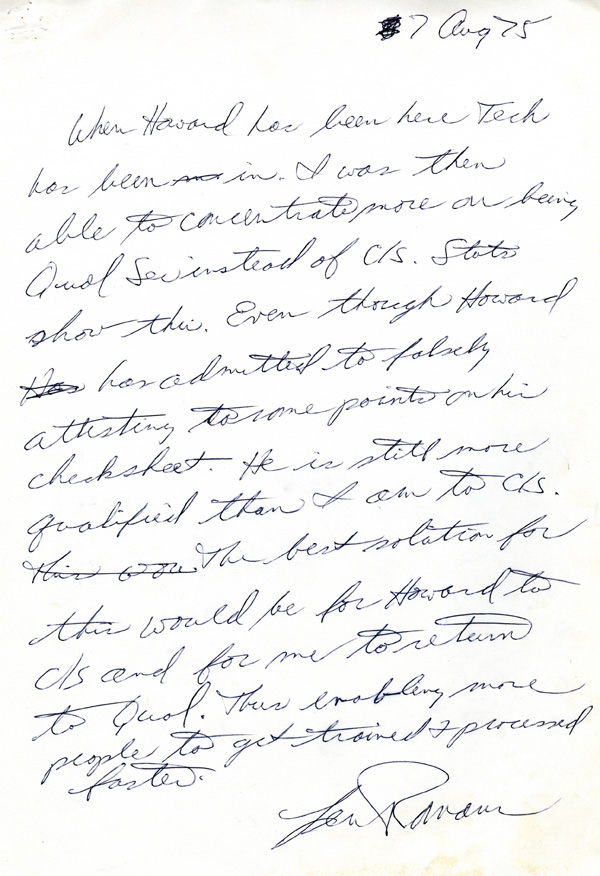 7 Aug 75
When Howard has been here Tech
has been in. I was then
able to concentrate more on being
Qual Sec instead of C/S. Stats
show this. Even though Howard
has admitted to falsely
attesting to some points on his
checksheet. He is still more
qualified than I am to C/S.
The best solution for
this would be for Howard to
C/S and for me to return
to Qual. Thus enabling more
people to get trained & processed
faster.
Len